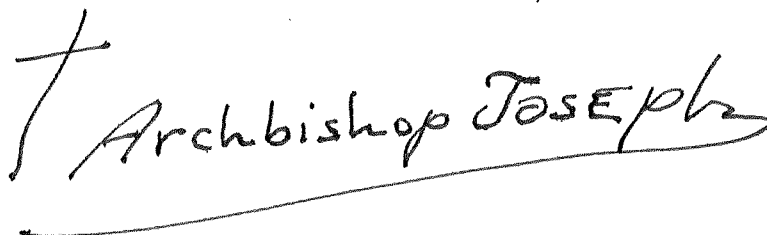 † Archbishop JosEph